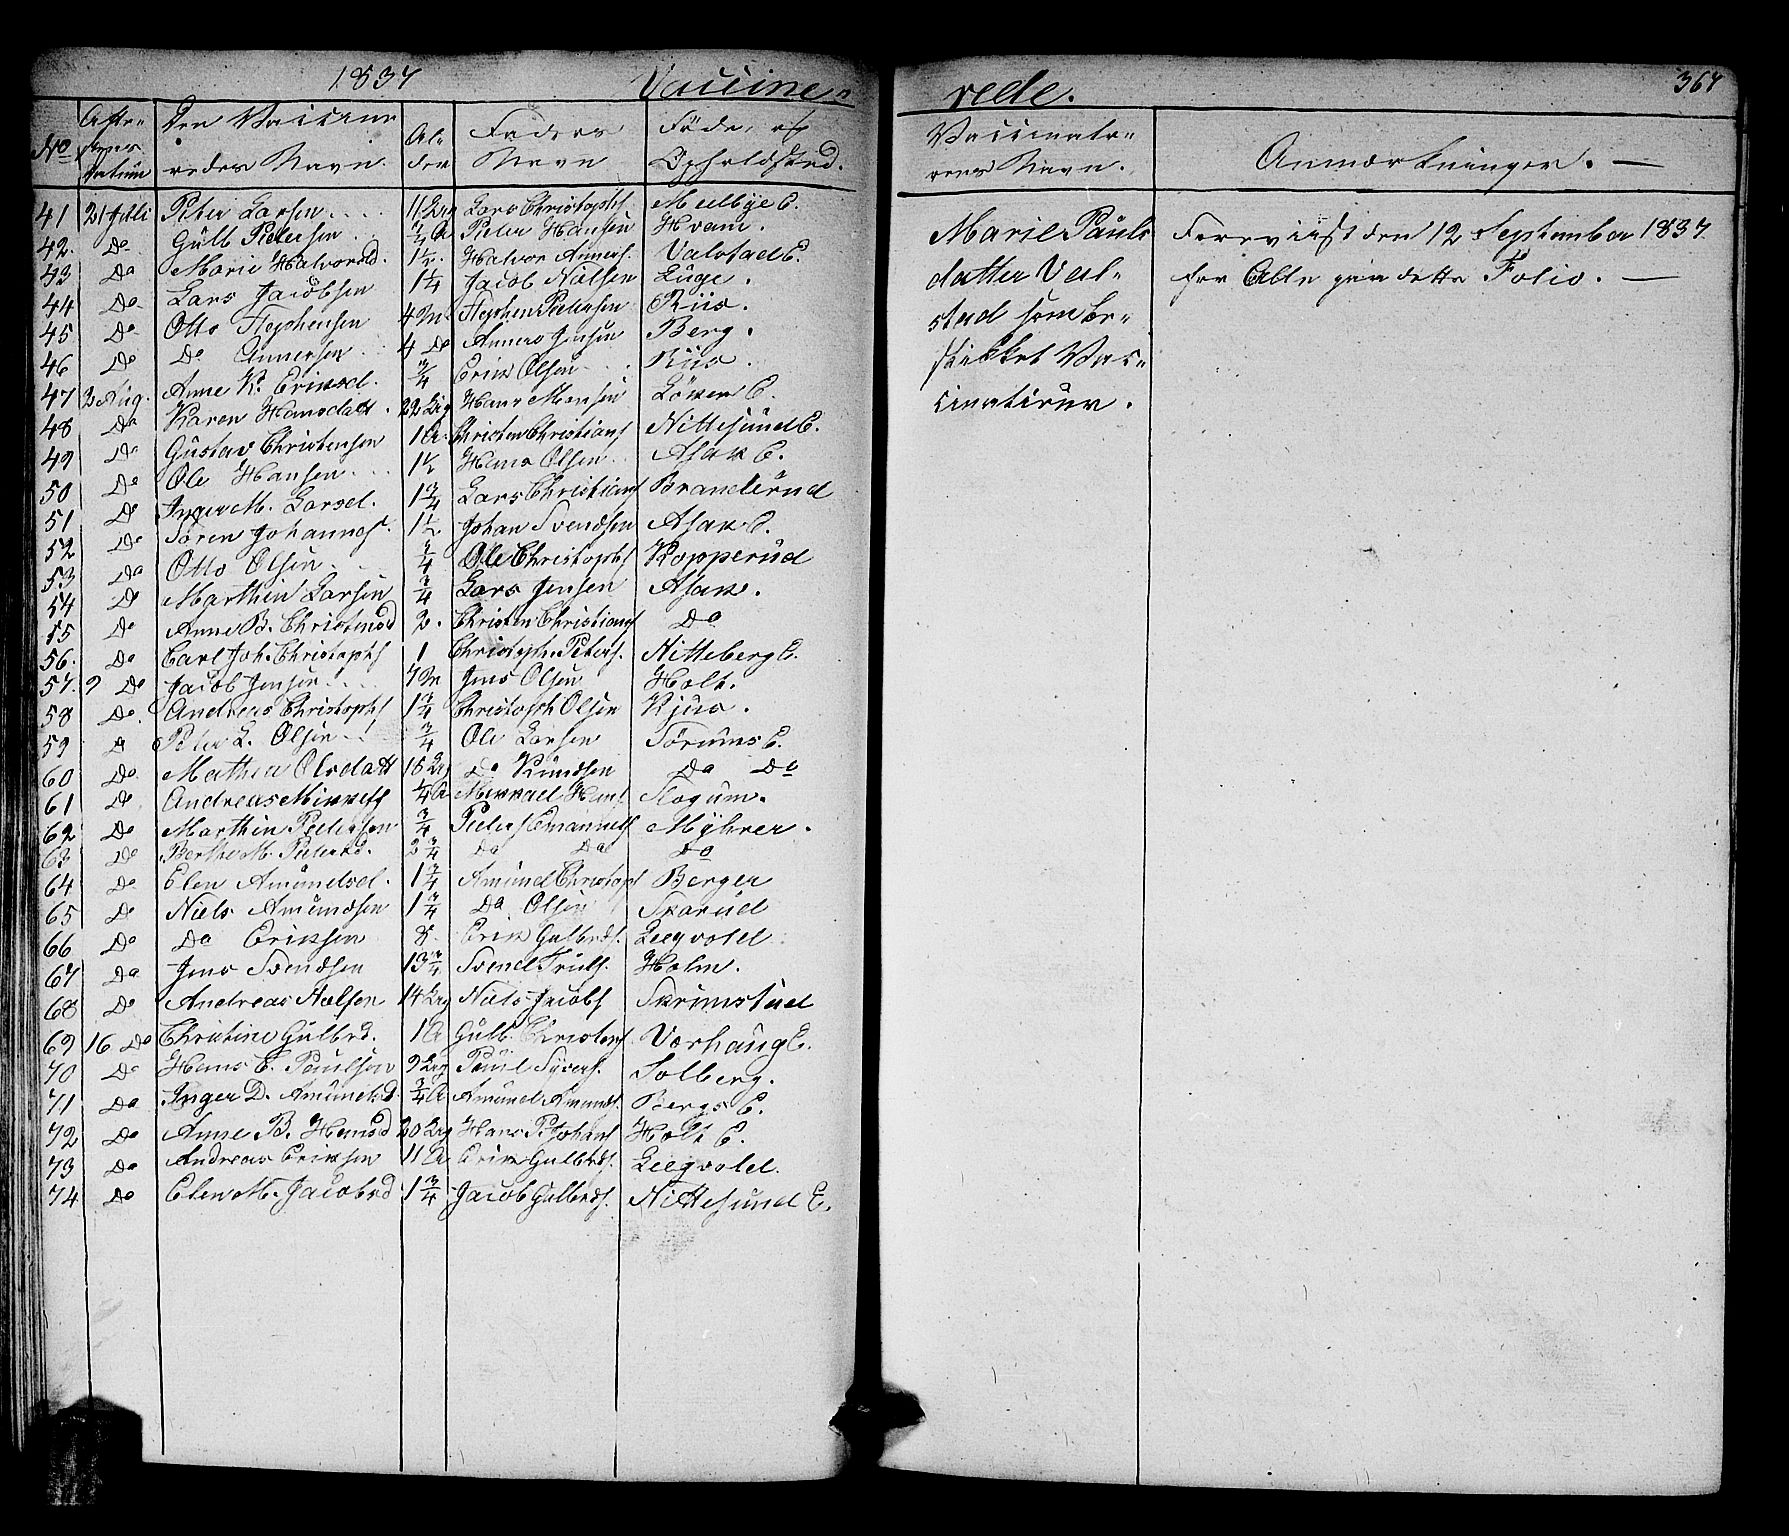 1837 Vaccine-
No Atte-stens Datum Den Vaccine-redes Navn. Al-der Faders Navn Føde- og Opholdsted.
41 21 Juli Peter Larsen 11 Uger Lars Christophs. Melbye E.
42. Do Gulb Pedersen 3/4 A Peder Hansen Hvam.
43 Do Marie Halvorsd. 1 1/2 Halvor Anners. Valstad E.
44 Do Lars Jacobsen 1 1/4 Jacob Nielsen Luge.
45 Do Otto Stephensen 4 M Stephen Pedersen Riis.
46 Do Do Annersen 4 Do Anners Jensen Berg.
47 2 Aug. Anne K. Eriksd. 3/4 Erik Olsen Riis.
48 Do Karen Hansdatt. 22 Ug Hans Monsen Løken E.
49 Do Gustav Christensen 1 A Christen Christians Nittesund E.
50 Do Ole Hansen 1 1/2 Hans Olsen Asak E.
51 Do Inger M. Larsd. 1 3/4 Lars Christians Branderud
52 Do Søren Johannes. 1 1/2 Johan Svendsen Asak E.
53 Do Otto Olsen 3/4 Ole Christophs Kopperud
54 Do Marthin Larsen 3/4 Lars Jensen Asak.
55 Do Anne B. Christensd 2. Christen Christians Do
56. Do Carl Joh. Christophs 1 Christoph. Peders. Nitteberg E.
57. 9 Do Jacob Jensen 7 M Jens Olsen Holt.
58 Do Andreas Christophs 1 3/4 Christoph Olsen Kjus.
59 Do Peter L. Olsen 3/4 Ole Larsen Sørums E.
60 Do Mathea Olsdatt 16 Ug Do Knudsen Do Do
61 Do Andreas Mikkels 1/4 A Mikkael Hans. Slogum.
62 Do Marthin Pedersen 3/4 Peder Emannels Myhrer.
63 Do Berthe M. Pedersd. 2 3/4 Do Do Do
64 Do Elen Amundsd. 1 3/4 Amund Christoph Berger
65 Do Niels Amundsen 1 3/4 Do Olsen Skarud
66 Do Do Eriksen 8. Erik Gulbrds. Leegvold
67 Do Jens Svendsen 13 3/4 Svend Truls. Holm.
68 Do Andreas Nielsen 14 Ug Niels Jacobs Skrimstad
69 16 Do Christine Gulbrd. 1 A Gulb. Christens Vorhaug E.
70 Do Hans E. Paulsen 9 Ug Paul Syvers. Solberg.
71 Do Inger D. Amundsd 3/4 A Amund Amunds. Bergs E.
72 Do Anne B. Hansd 20 Ug Hans P. Johans Holt E.
73 Do Andreas Eriksen 11 A Erik Gulbrds. Leegvold.
74 Do Elen M. Jacobsd 1 3/4 Jacob Gulbrds. Nittesund E.
rede. 367
Vaccinato-rens Navn. Anmærkninger. —
Marie Pauls Foreviist den 12 September 1837.
datter Val- for Alle paa dette Folio. —
stad som be-
skikket Vac-
cinatirer.